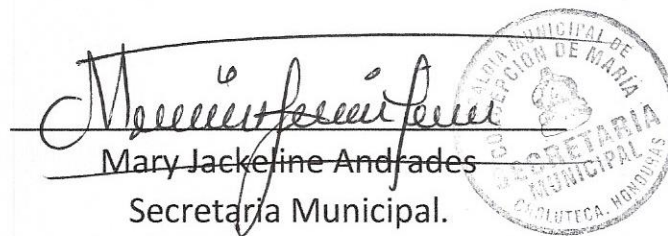 Mary Jackeline Andrades
Secretaria Municipal.
ALCALDIA MUNICIPAL DE
CONCEPCION DE MARIA
SECRETARIA
MUNICIPAL
CHOLUTECA, HONDURAS